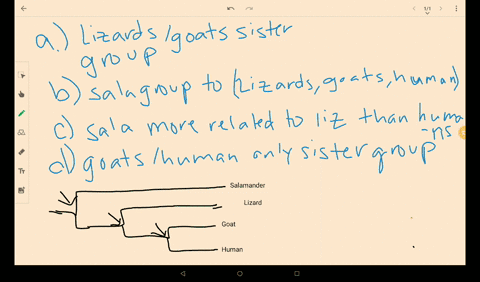 a.) Lizards/goats sister
group
b) salagroup to (Lizards, goats, human)
c) sala more related to liz than huma
-ns
d) goats/human only sister group
Salamander
Lizard
Goat
Human
1/1
Tт